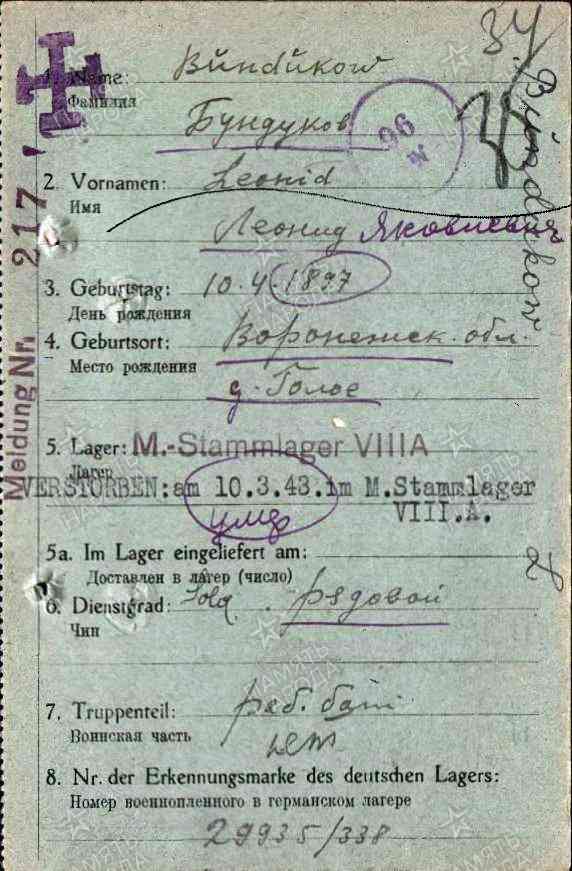 1. Name: Bŭndŭkow
Фамилия
Бундуков
2. Vornamen: Leonid
Имя
Леонид Яковлевич
3. Geburtstag: 10.4.1897
День рождения
4. Geburtsort: Воронежск. обл.
Место рождения
д. Голое
5. Lager: M.-Stammlager VIIIA
Лагерь
VERSTORBEN: am 10.3.43. im M.Stammlager
VIII.A.
умер
5a. Im Lager eingeliefert am:
Доставлен в лагерь (число)
6. Dienstgrad: Sold. рядовой
Чин
7. Truppenteil: раб. бат
Воинская часть
8. Nr. der Erkennungsmarke des deutschen Lagers:
Номер военнопленного в германском лагере
29935/338
Meldung Nr. 217
Bŭndŭkow
34
96
ПАМЯТЬ НАРОДА